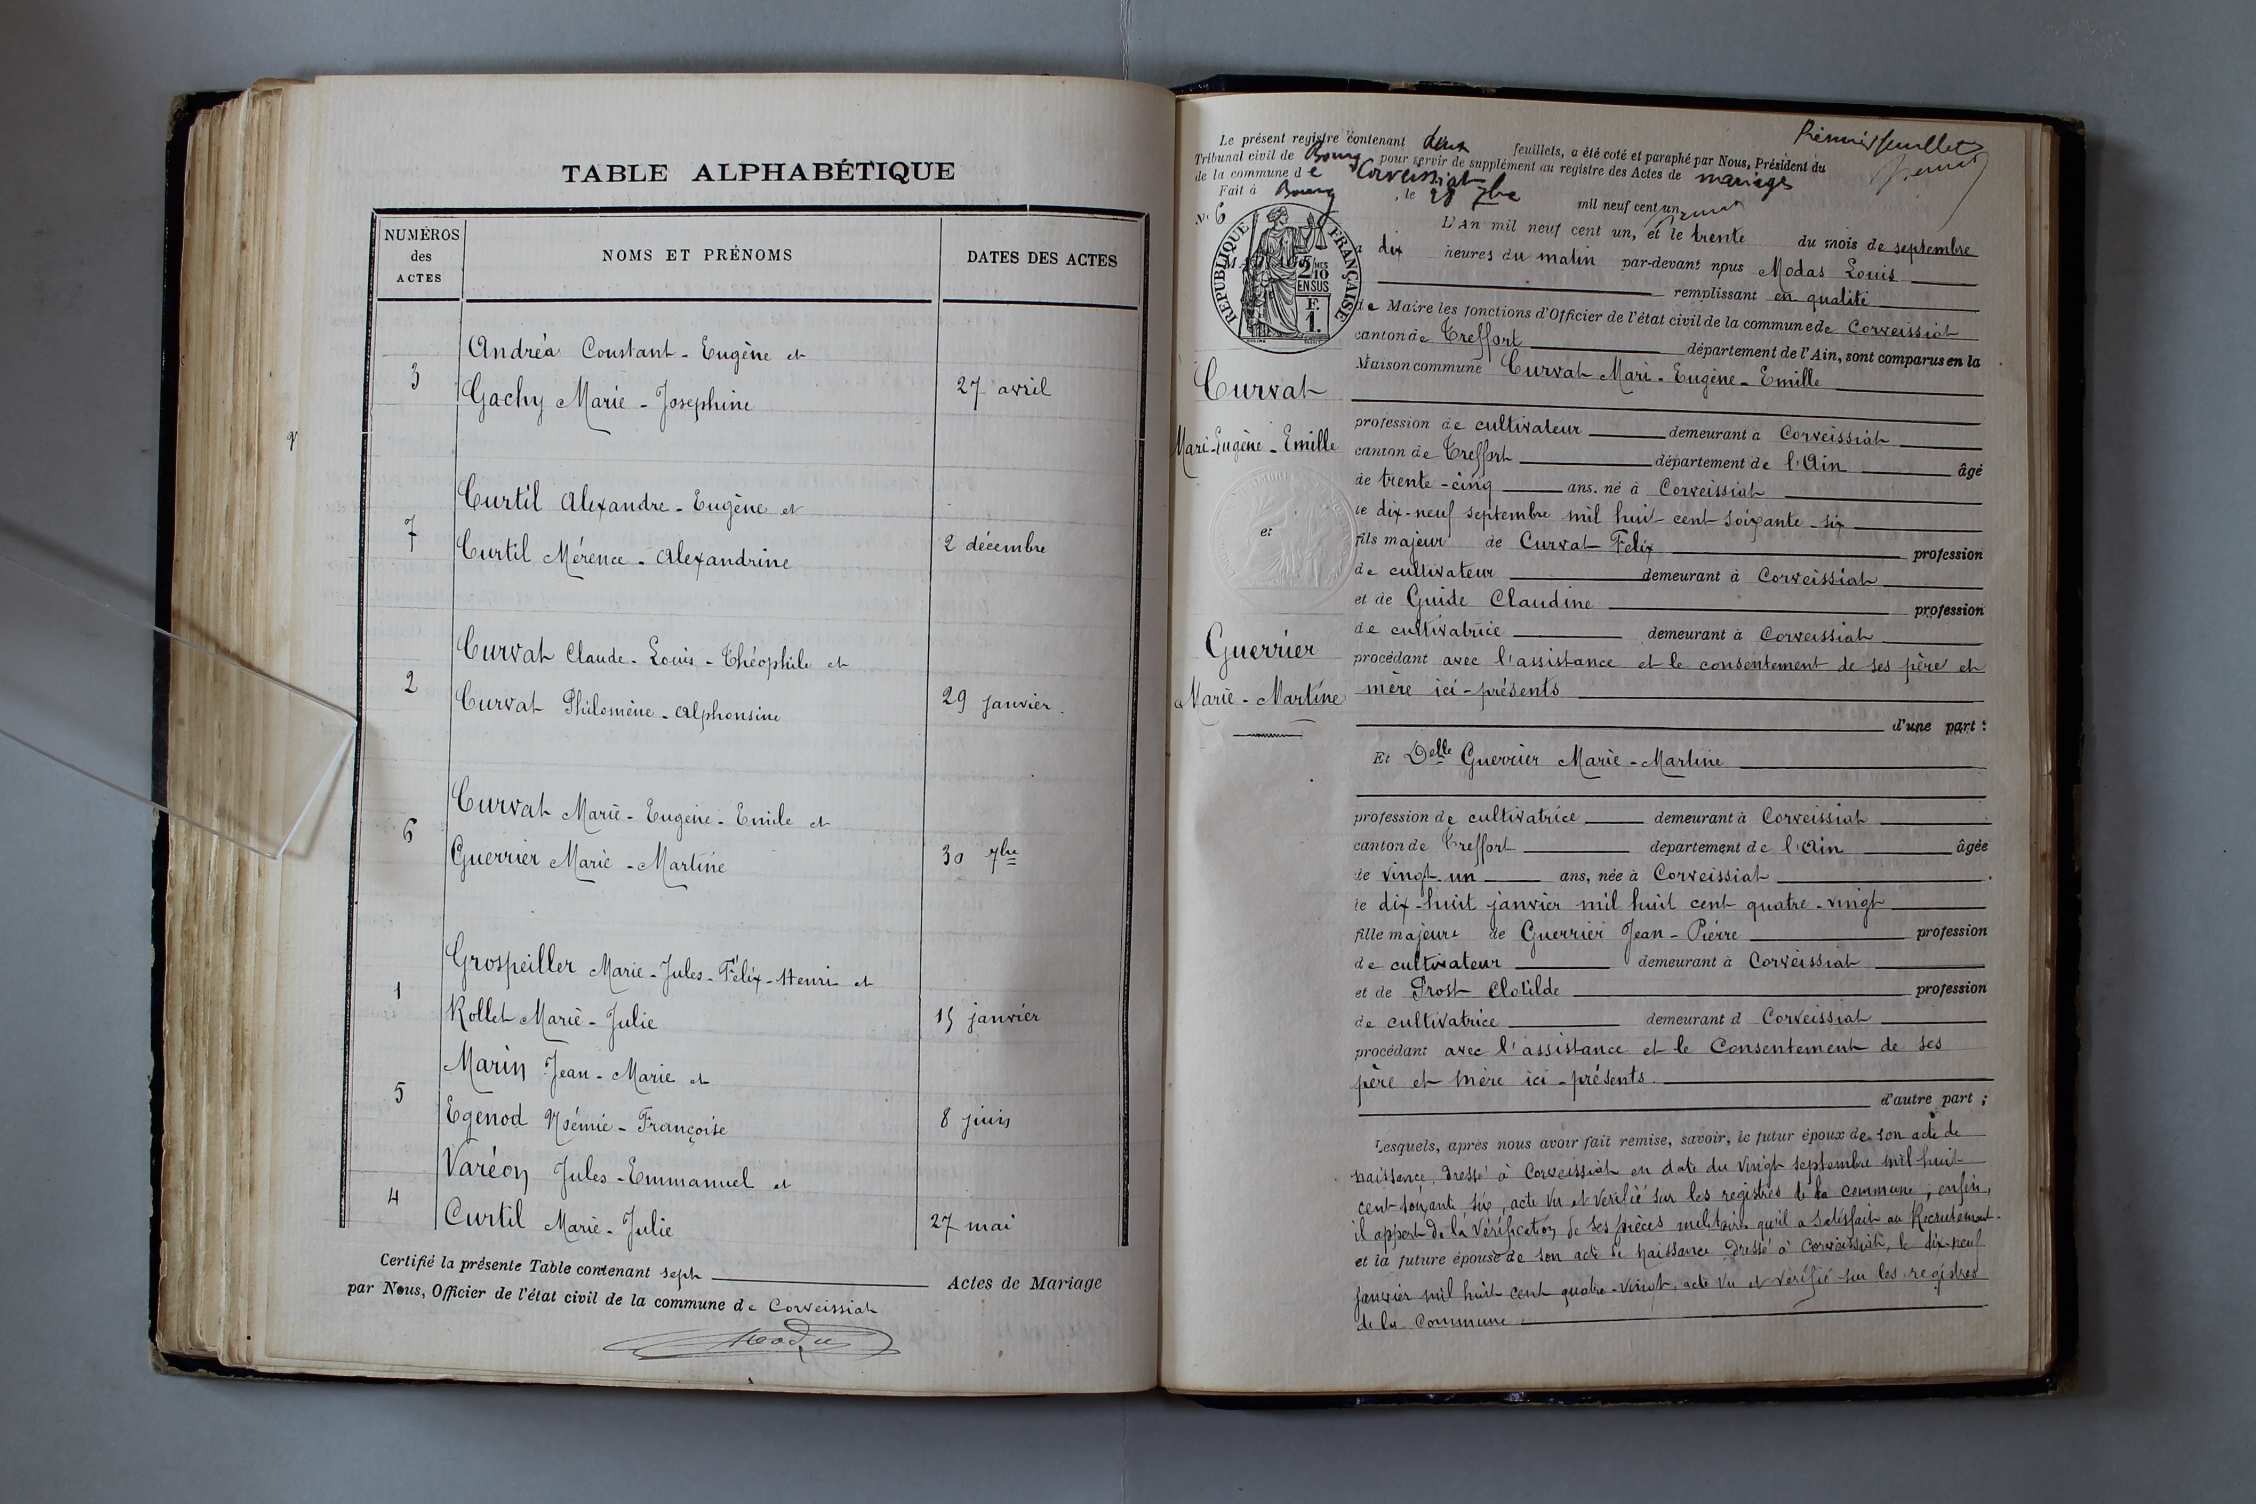 TABLE ALPHABÉTIQUE
NUMÉROS des ACTES
NOMS ET PRÉNOMS
DATES DES ACTES
Andréa Constant - Eugène et
3 Gachy Marie - Josephine 27 avril
Curtil Alexandre - Eugène et
7 Curtil Mérence - Alexandrine 2 décembre
Curvat Claude - Louis - Théophile et
2 Curvat Philomène - Alphonsine 29 janvier.
Curvat Marie - Eugène - Emile et
6 Guerrier Marie - Martine 30 7bre
Grospeiller Marie - Jules - Félix - Henri et
1 Rollet Marie - Julie 15 janvier
Marin Jean - Marie et
5 Egenod Noémie - Françoise 8 juin
Varéon Jules - Emmanuel et
4 Curtil Marie - Julie 27 mai
Certifié la présente Table contenant sept Actes de Mariage
par Nous, Officier de l'état civil de la commune de Corveissiat
Premier feuillet
Le présent registre contenant deux feuillets, a été coté et paraphé par Nous, Président du
Tribunal civil de Bourg pour servir de supplément au registre des Actes de mariages
de la commune de Corveissiat
Fait à Bourg, le 28 7bre mil neuf cent un
N° 6
RÉPUBLIQUE FRANÇAISE
2/10 EN SUS
F. 1.
L'An mil neuf cent un, et le trente du mois de septembre
dix heures du matin par-devant nous Modas Louis
remplissant en qualité
de Maire les fonctions d'Officier de l'état civil de la commune de Corveissiat
canton de Treffort département de l'Ain, sont comparus en la
Maison commune Curvat Mari - Eugène - Emille
Curvat
Mari - Eugène - Emille
et
Guerrier
Marie - Martine
profession de cultivateur demeurant à Corveissiat
canton de Treffort département de l'Ain âgé
de trente - cinq ans, né à Corveissiat
le dix - neuf septembre mil huit cent soixante - six
fils majeur de Curvat Felix profession
de cultivateur demeurant à Corveissiat
et de Guide Claudine profession
de cultivatrice demeurant à Corveissiat
procédant avec l'assistance et le consentement de ses père et
mère ici - présents
d'une part :
Et Delle Guerrier Marie - Martine
profession de cultivatrice demeurant à Corveissiat
canton de Treffort département de l'Ain âgée
de vingt - un ans, née à Corveissiat
le dix - huit janvier mil huit cent quatre - vingt
fille majeure de Guerrier Jean - Pierre profession
de cultivateur demeurant à Corveissiat
et de Prost Clotilde profession
de cultivatrice demeurant à Corveissiat
procédant avec l'assistance et le Consentement de ses
père et mère ici - présents.
d'autre part ;
Lesquels, après nous avoir fait remise, savoir, le futur époux de son acte de
naissance, dressé à Corveissiat en date du vingt septembre mil huit
cent soixante six, acte vu et verifié sur les registres de la commune ; enfin,
il appert de la vérification de ses pièces militaires qu'il a satisfait au Recrutement.
et la future épouse de son acte de naissance dressé à Corveissiat, le dix-neuf
janvier mil huit cent quatre - vingt, acte vu et verifié sur les registres
de la Commune